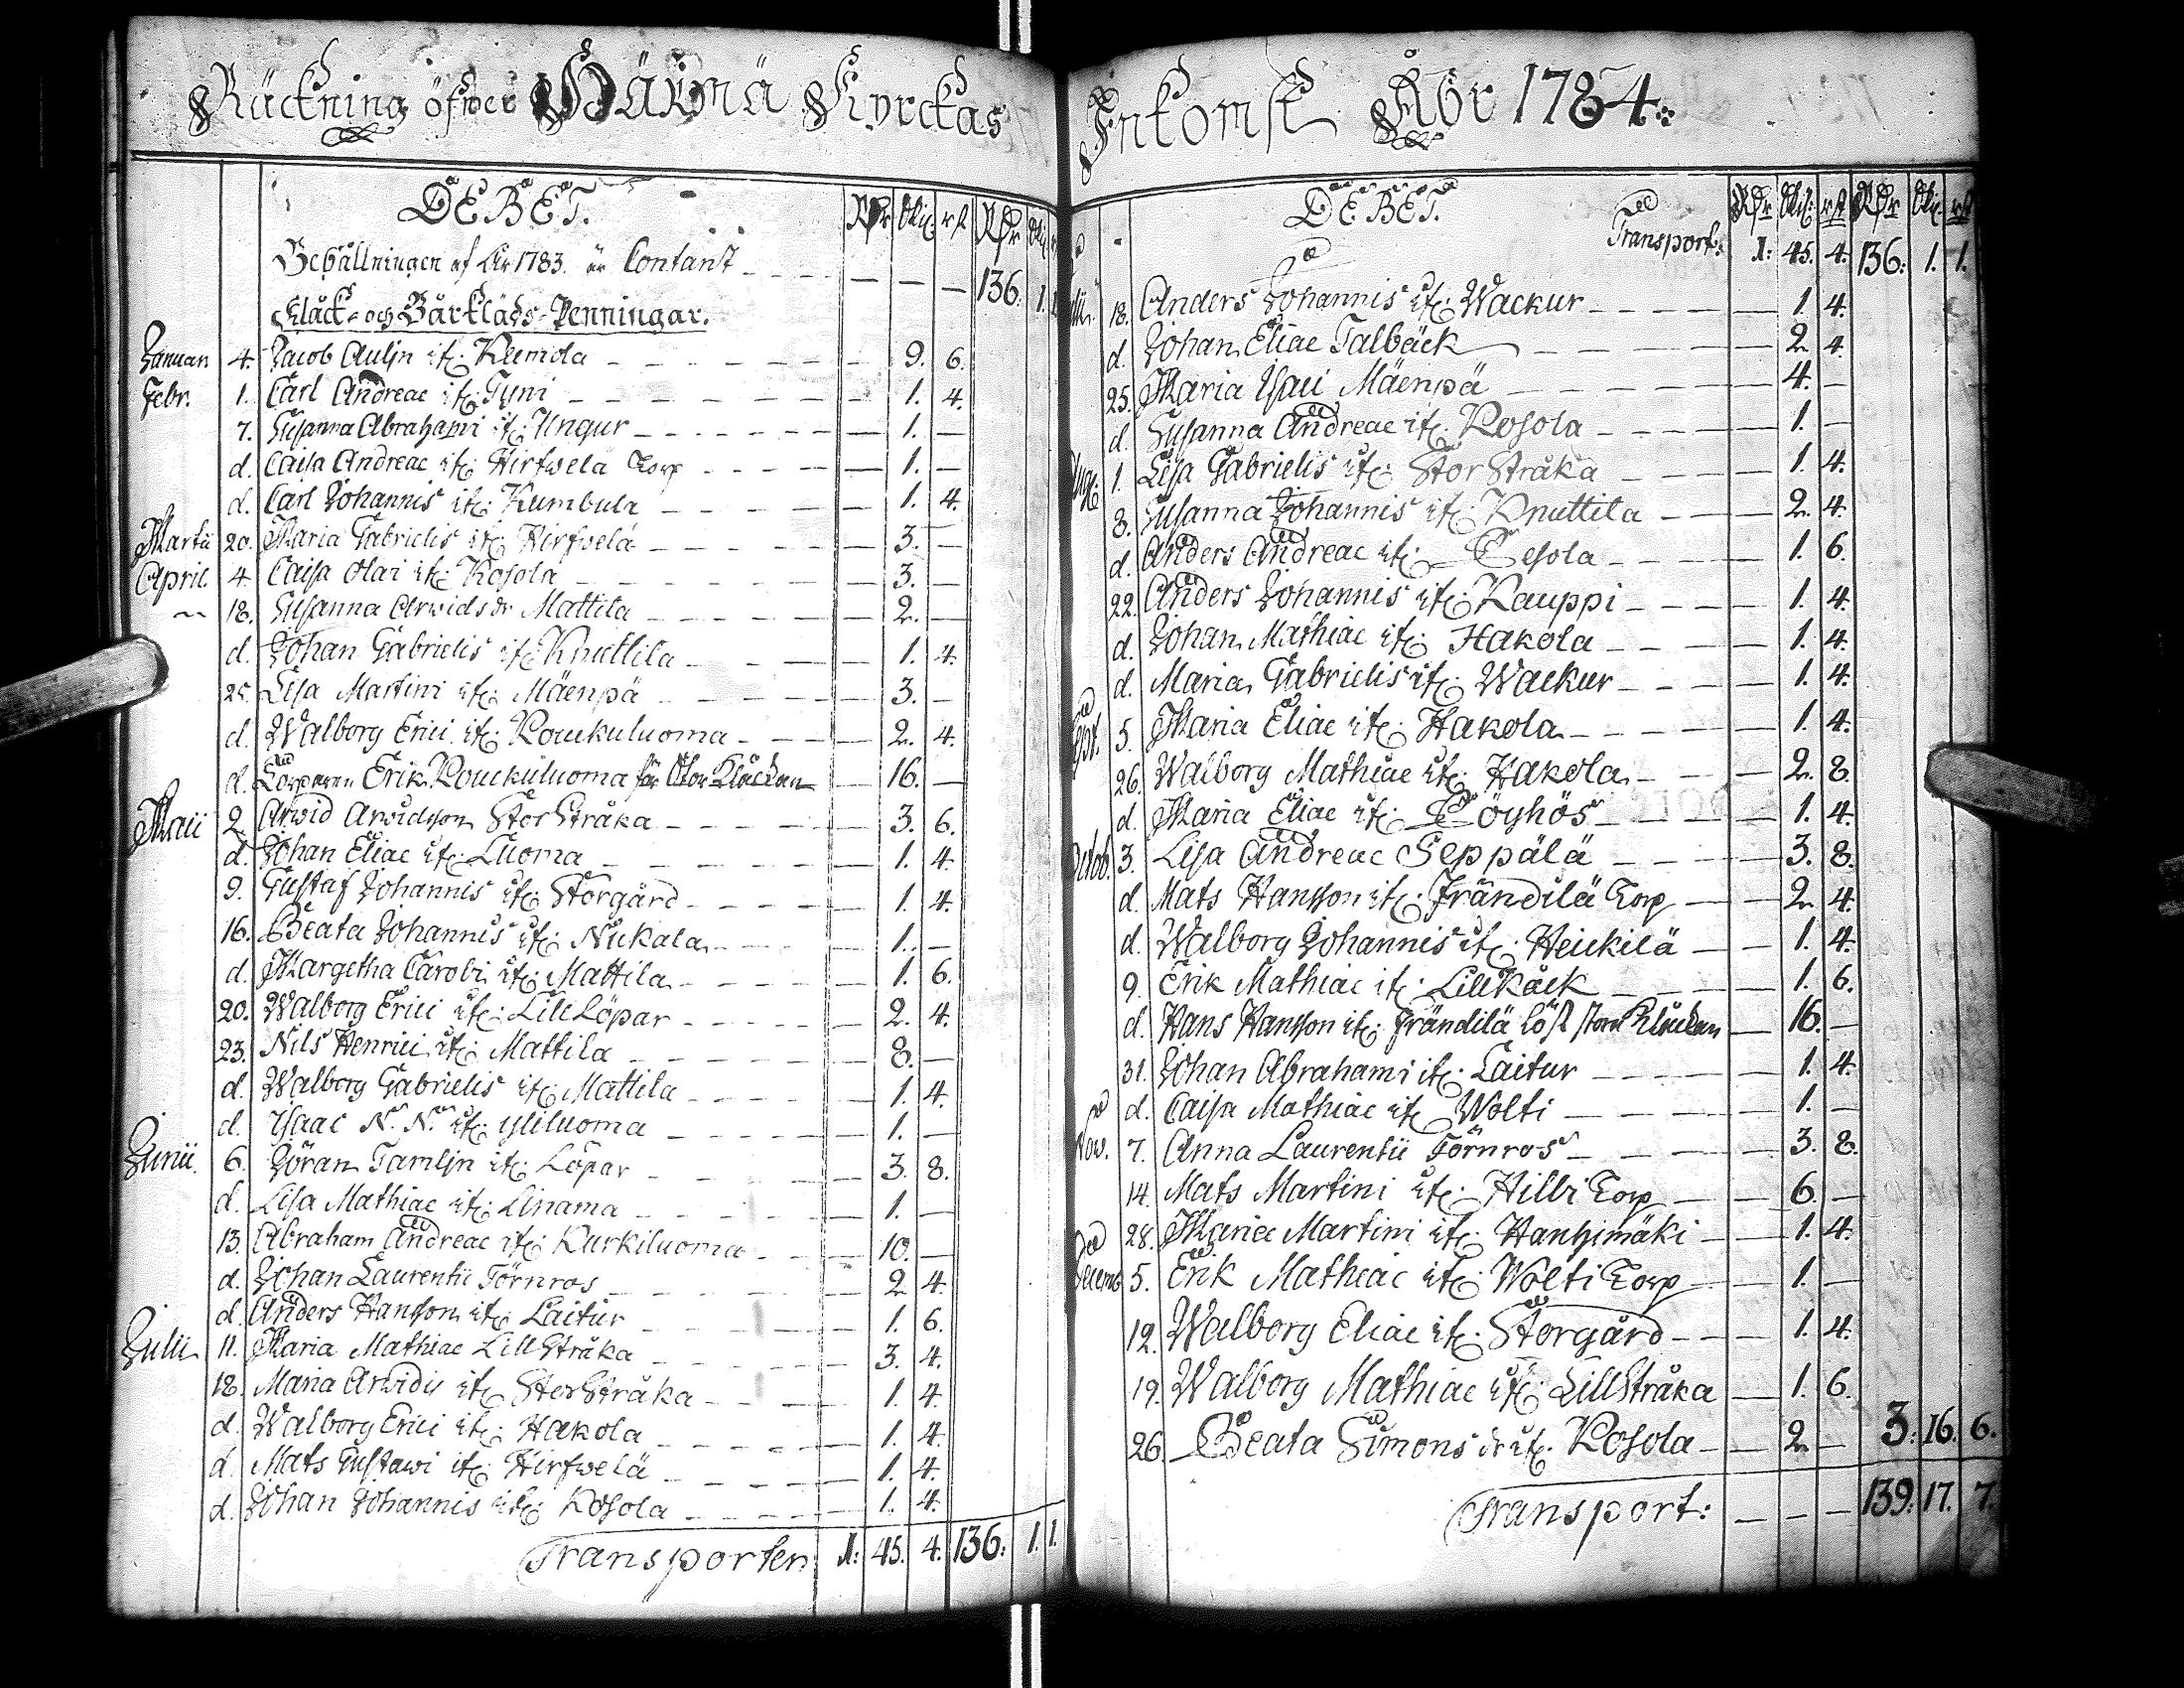 Räckning öfwer Härmä Kyrckas
DEBET. Rdr Skil. rst Rdr Skil.
Behållningen af År 1783. är Contant — — — 136. 1. 1.
Klåck- och Bårkläds-Penningar.
Januari 4. Jacob Aulin it: Klemola 9. 6.
Febr. 1. Carl Andreae it: Tyni — 1. 4.
7. Susanna Abrahami it: Ungur — 1. —
d. Caisa Andreae it: Hirfwelä Torp — 1. —
d. Carl Johannis it: Kumbula — 1. 4.
Martii 20. Maria Gabrielis it: Hirfwelä — 3. —
April. 4. Caisa Olai it: Kosola — 3. —
18. Susanna Arwidsdr Mattila — 2. —
d. Johan Gabrielis it: Knuttila — 1. 4.
25. Lisa Martini it: Mäenpä — 3. —
d. Walborg Erici it: Rouckuluoma — 2. 4.
d. Erik Rouckuluoma för Stor Klåckan 16. —
Maii 2 Arwid Arwidsson StorStråka — 3. 6.
d. Johan Eliae it: Luoma — 1. 4.
9. Gustaf Johannis it: Storgård — 1. 4.
16. Beata Johannis it: Niskala — 1. —
d. Margetha Jacobi it: Mattila — 1. 6.
20. Walborg Erici it: LillLöpar — 2. 4.
23. Nils Henrici it: Mattila — 8. —
d. Walborg Gabrielis it: Mattila — 1. 4.
d. Isaac N. N. it: yliluoma — 1. —
Junii. 6. Göran Tamlin it: Löpar — 3. 8.
d. Lisa Mathiae it: Linama — 1. —
13. Abraham Andreae it: Kurkiluoma 10. —
d. Johan Laurentii Törnros — 2 4.
d. Anders Hansson it: Laitur — 1. 6.
Julii 11. Maria Mathiae LillStråka — 3. 4.
18. Maria Arwidi it: StorStråka — 1. 4.
d. Walborg Erici it: Hakola — 1. 4.
d. Mats Gustawi it: Hirfwelä — 1. 4.
d. Johan Johannis it: Kosola — 1. 4.
Transporten 1: 45. 4. 136: 1. 1.
Inkomst Åhr 1784.
DEBET. Rdr Skil: rst Rdr Skil. rst
Transport: 1: 45. 4. 136: 1. 1.
18. Anders Johannis it: Wackur — 1. 4.
d. Johan Eliae Talbäck — 2 4.
25. Maria Isaci Mäenpä — 4. —
d. Susanna Andreae it: Kosola — 1. —
Aug: 1. Lisa Gabrielis it: Stor Stråka — 1. 4.
8. Susanna Johannis it: Knuttila — 2. 4.
d. Anders Andreae it: Tesola — 1. 6.
22. Anders Johannis it: Kauppi — 1. 4.
d. Johan Mathiae it: Hakola — 1. 4.
d. Maria Gabrielis it: Wackur — 1. 4.
Sept. 5. Maria Eliae it: Hakola — 1. 4.
26. Walborg Mathiae it: Hakola — 2. 8.
d. Maria Eliae it: Löyhös — 1. 4.
Octob. 3. Lisa Andreae Seppälä — 3. 8.
d. Mats Hansson it: Frändilä Torp — 2 4.
d. Walborg Johannis it: Heickilä — 1. 4.
9. Erik Mathiae it: LillKåck — 1. 6.
d. Hans Hansson it: Frändilä löst stora Klåckan — 16. —
31. Johan Abrahami it: Laitur — 1. 4.
d. Caisa Mathiae it: Wolti — 1. —
Now. 7. Anna Laurentii Törnros — 3. 8.
14. Mats Martini it: Hilli Torp — 6. —
28. Maria Martini it: Hanhimäki — 1. 4.
Decemb 5. Erik Mathiae it: Wolti Torp — 1. —
12. Walborg Eliae it: Storgård — 1. 4.
19. Walborg Mathiae it: LillStråka — 1. 6.
26. Beata Simonsdr it: Kosola — 2 — 3: 16. 6.
Transport: — — — 139: 17. 7.